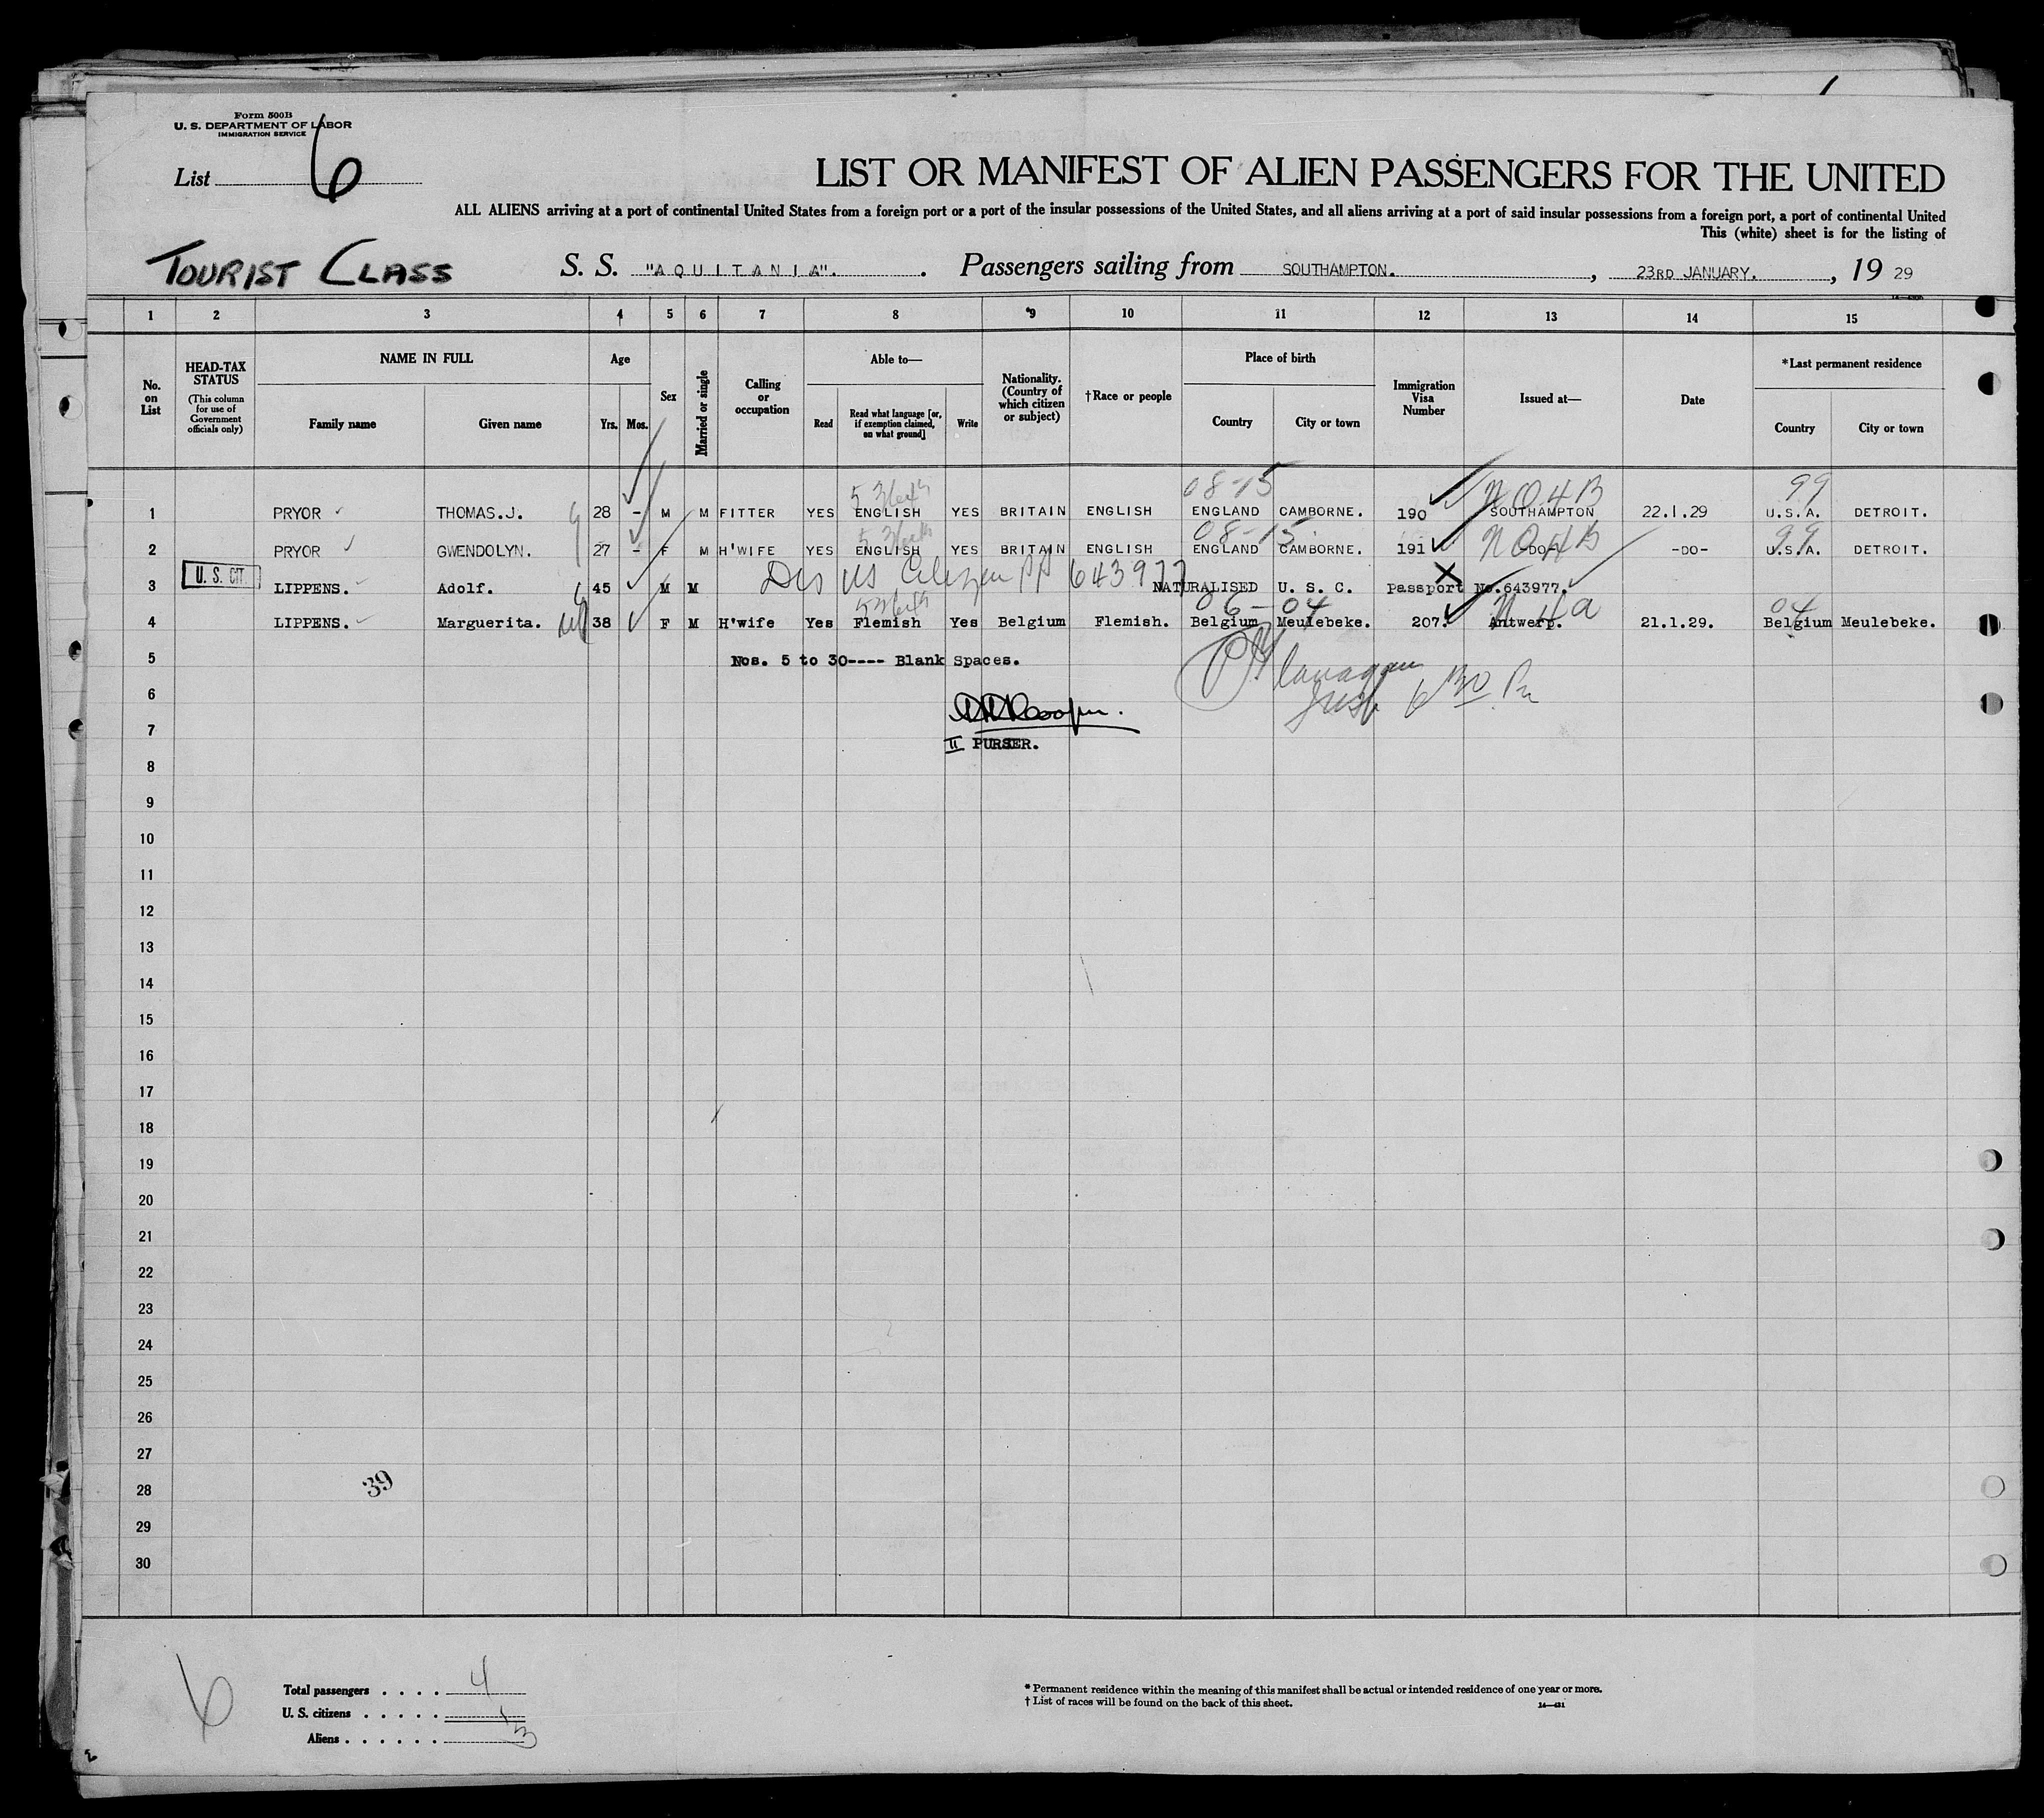 Form 500B
U. S. DEPARTMENT OF LABOR
IMMIGRATION SERVICE
List 6
LIST OR MANIFEST OF ALIEN PASSENGERS FOR THE UNITED
ALL ALIENS arriving at a port of continental United States from a foreign port or a port of the insular possessions of the United States, and all aliens arriving at a port of said insular possessions from a foreign port, a port of continental United
This (white) sheet is for the listing of
TOURIST CLASS S. S. "AQUITANIA". Passengers sailing from SOUTHAMPTON. , 23RD JANUARY. , 19 29
1 2 3 4 5 6 7 8 *9 10 11 12 13 14 15
No. on List
HEAD-TAX STATUS
(This column for use of Government officials only)
NAME IN FULL
Family name Given name
Age
Yrs. Mos.
Sex
Married or single
Calling or occupation
Able to—
Read Read what language [or, if exemption claimed, on what ground] Write
Nationality. (Country of which citizen or subject)
†Race or people
Place of birth
Country City or town
Immigration Visa Number
Issued at—
Date
*Last permanent residence
Country City or town
08-15 NO4B 99
1 PRYOR THOMAS.J. 28 - M M FITTER YES ENGLISH YES BRITAIN ENGLISH ENGLAND CAMBORNE. 190 SOUTHAMPTON 22.1.29 U.S.A. DETROIT.
08-15 NO4B 99
2 PRYOR GWENDOLYN. 27 - F M H'WIFE YES ENGLISH YES BRITAIN ENGLISH ENGLAND CAMBORNE. 191 -DO- -DO- U.S.A. DETROIT.
US Citizen PP 643977
3 U. S. CIT. LIPPENS. Adolf. 45 M M NATURALISED U. S. C. Passport No.643977.
06-04 04
4 LIPPENS. Marguerita. 38 F M H'wife Yes Flemish Yes Belgium Flemish. Belgium Meulebeke. 207. Antwerp. 21.1.29. Belgium Meulebeke.
5 Nos. 5 to 30---- Blank Spaces.
6
7
II PURSER.
8
9
10
11
12
13
14
15
16
17
18
19
20
21
22
23
24
25
26
27
28
39
29
30
6
Total passengers . . . . 4
U. S. citizens . . . . . 1
Aliens . . . . . . 3
* Permanent residence within the meaning of this manifest shall be actual or intended residence of one year or more.
† List of races will be found on the back of this sheet.